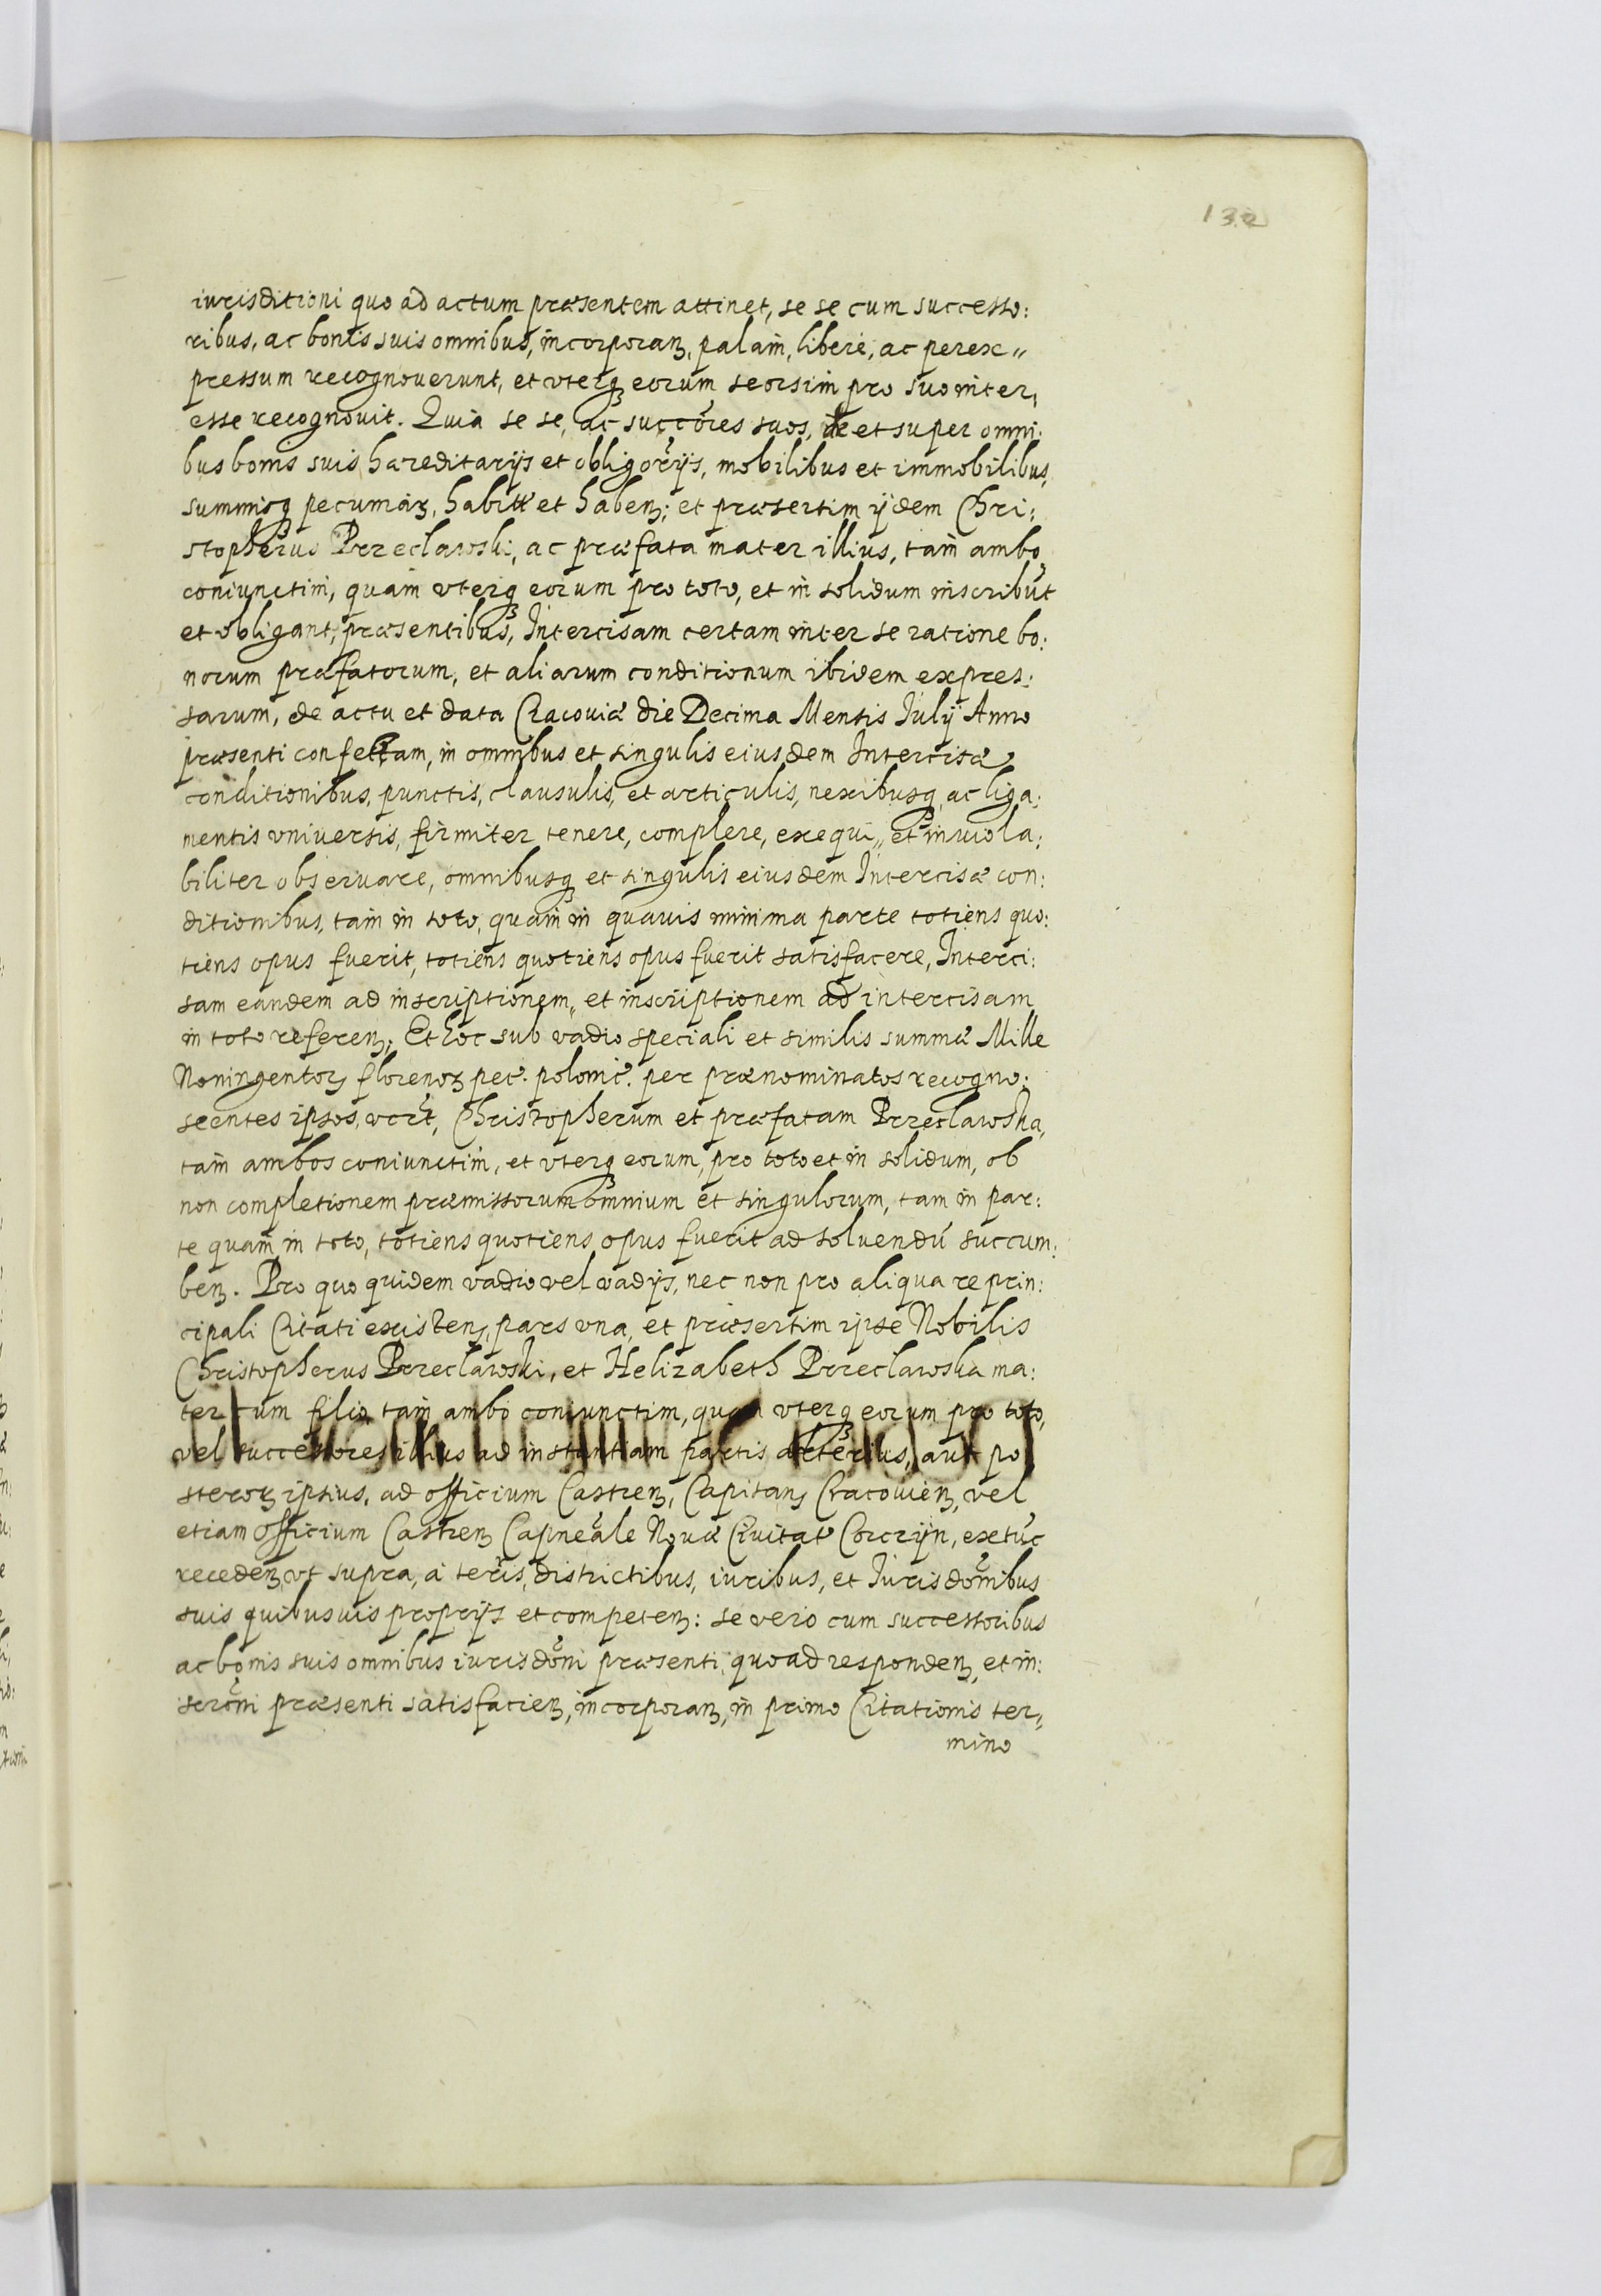 132
iurisditioni quo ad actum præsentem attinet, se se cum successo:
ribus, ac bonis suis omnibus, incorporan͂, palam, libere, ac perex„
pressum recognouerunt, et vterq₃ eorum seorsim pro suo inter,
esse recognouit. Quia se se, ac succ̃ores suos, de et super omni:
bus bonis suis hæreditarijs et obligor̃ijs, mobilibus et immobilibus,
summisq₃ pecuniar₃, habit̃ et haben₃; et præsertim ijdem Chri:
stopherus Przeclawski, ac præfata mater illius, tam ambo
coniunctim, quam vterq₃ eorum pro toto, et in solidum inscribũt
et obligant, præsentibus, Intercisam certam inter se ratione bo:
norum præfatorum, et aliarum conditionum ibidem expres:
sarum, de actu et data Cracoviæ die Decima Mensis Iulij Anno
præsenti confectam, in omnibus et singulis eiusdem Intercisæ
conditionibus, punctis, clausulis, et articulis, nexibusq₃ ac liga:
mentis vniuersis, firmiter tenere, complere, exequi„ et inuiola:
biliter obseruare, omnibusq₃ et singulis eiusdem Intercisæ con:
ditionibus, tam in toto, quam in quauis minima parte totiens quo:
tiens opus fuerit, totiens quotiens opus fuerit satisfacere, Interci:
sam eandem ad inscriptionem„ et inscriptionem ad intercisam
in toto referen₃; Et hoc sub vadio speciali et similis summæ Mille
Noningentor₃ florenor₃ pec̃. polonic̃. per prænominatos recogno:
scentes ipsos, vcr̃t, Christopherum et præfatam Przeclawska,
tam ambos coniunctim, et vterq₃ eorum, pro toto et in solidum, ob
non completionem præmissorum omnium et singulorum, tam in par:
te quam in toto, totiens quotiens opus fuerit ad soluendũ succum:
ben₃. Pro quo quidem vadio vel vadijs, nec non pro aliqua re prin:
cipali Citati existen₃, pars vna, et præsertim ijpse Nobilis
Christopherus Przeclawski, et Helizabeth Przeclawska ma:
ter cum filio, tam ambo coniunctim, quam vterq₃ eorum pro toto,
vel successores illius ad instantiam partis alterius, aut po
steror₃ ipsius, ad officium Castren₃, Capitan₃ Cracouien₃, vel
etiam officium Castren₃ Capneãle Nouæ Ciuitat̃ Corczijn, extũc
receden₃ vt supra, a ter̃is, districtibus, iuribus, et Iurisdõnibus
suis quibusuis proprijs et competen₃: se vero cum successoribus
ac bonis suis omnibus iurisdõni præsenti, quo ad responden₃, et in:
scrõni præsenti satisfacien₃, incorporan₃, in primo Citationis ter„
mino